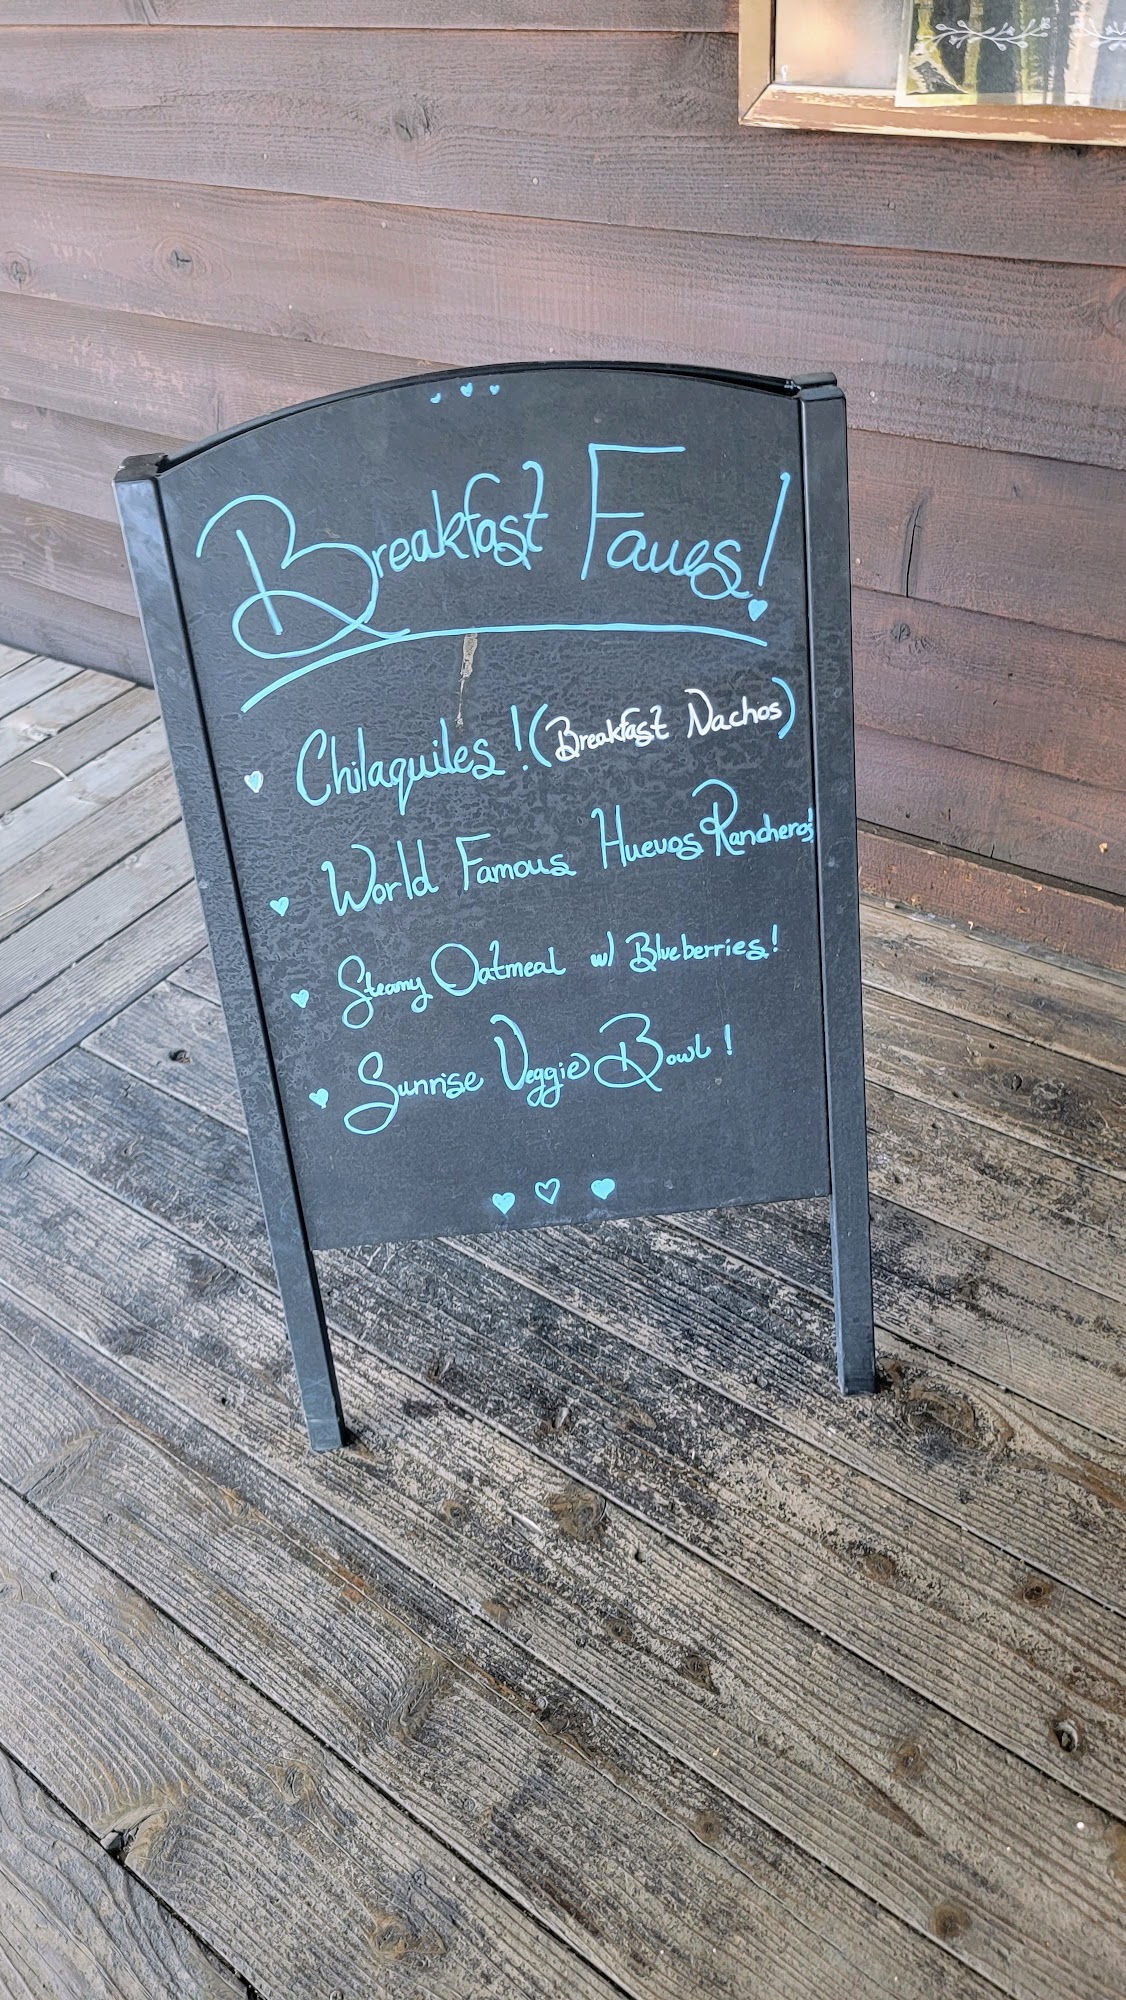 Breakfast Faves!
Chilaquiles! (Breakfast Nachos)
World Famous Huevos Rancheros!
Steamy Oatmeal w/ Blueberries!
Sunrise Veggie Bowl!